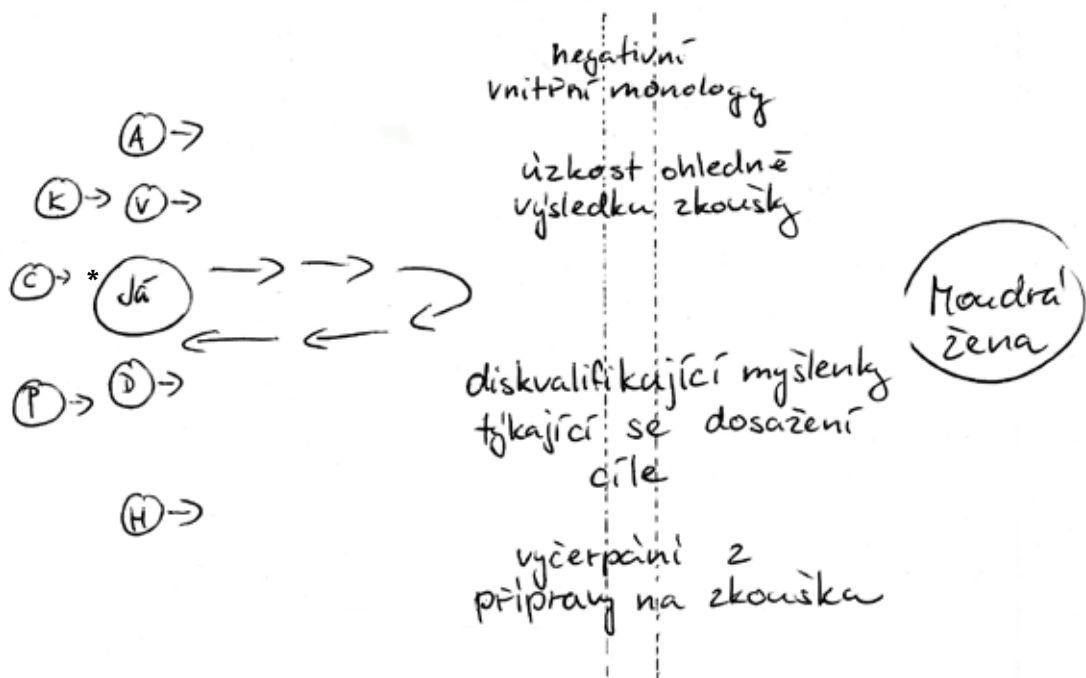 negativní
vnitřní monology
A
K
V
úzkost ohledně
výsledku zkoušky
C
*
Já
Moudrá
žena
P
D
diskvalifikající myšlenky
týkající se dosažení
cíle
H
vyčerpání z
přípravy na zkouška